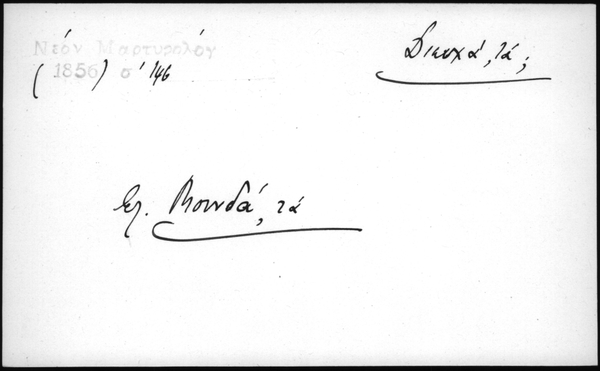 Νέον Μαρτυρολόγ
(1856) σ' 146
Διαυχά, τά;
βλ. Βουνδά, τά